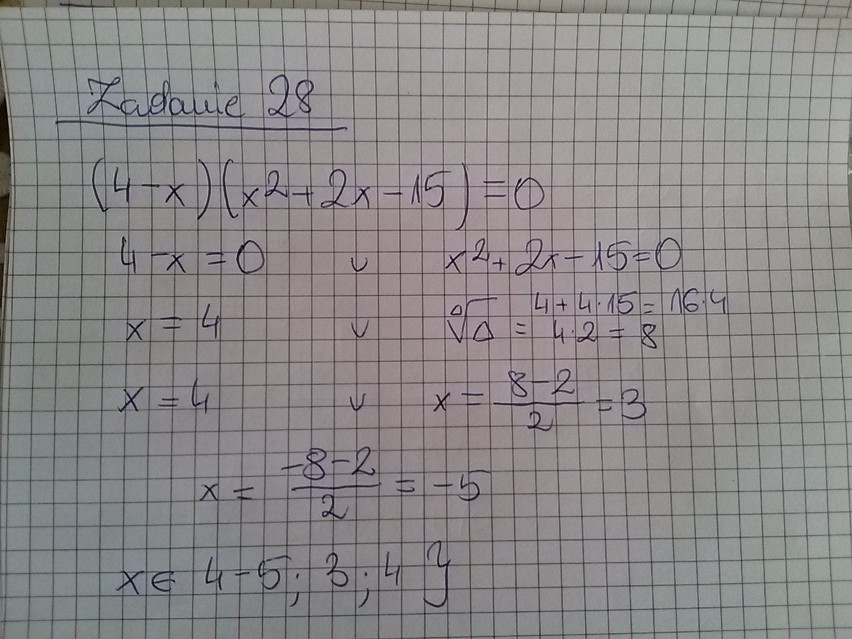 Zadanie 28
(4-x)(x²+2x-15)=0
4-x=0 ∨ x²+2x-15=0
x=4 ∨ √Δ = 4+4·15=16·4
4·2=8
x=4 ∨ x= (8-2)/2 =3
x= (-8-2)/2 = -5
x∈ {-5; 3; 4}